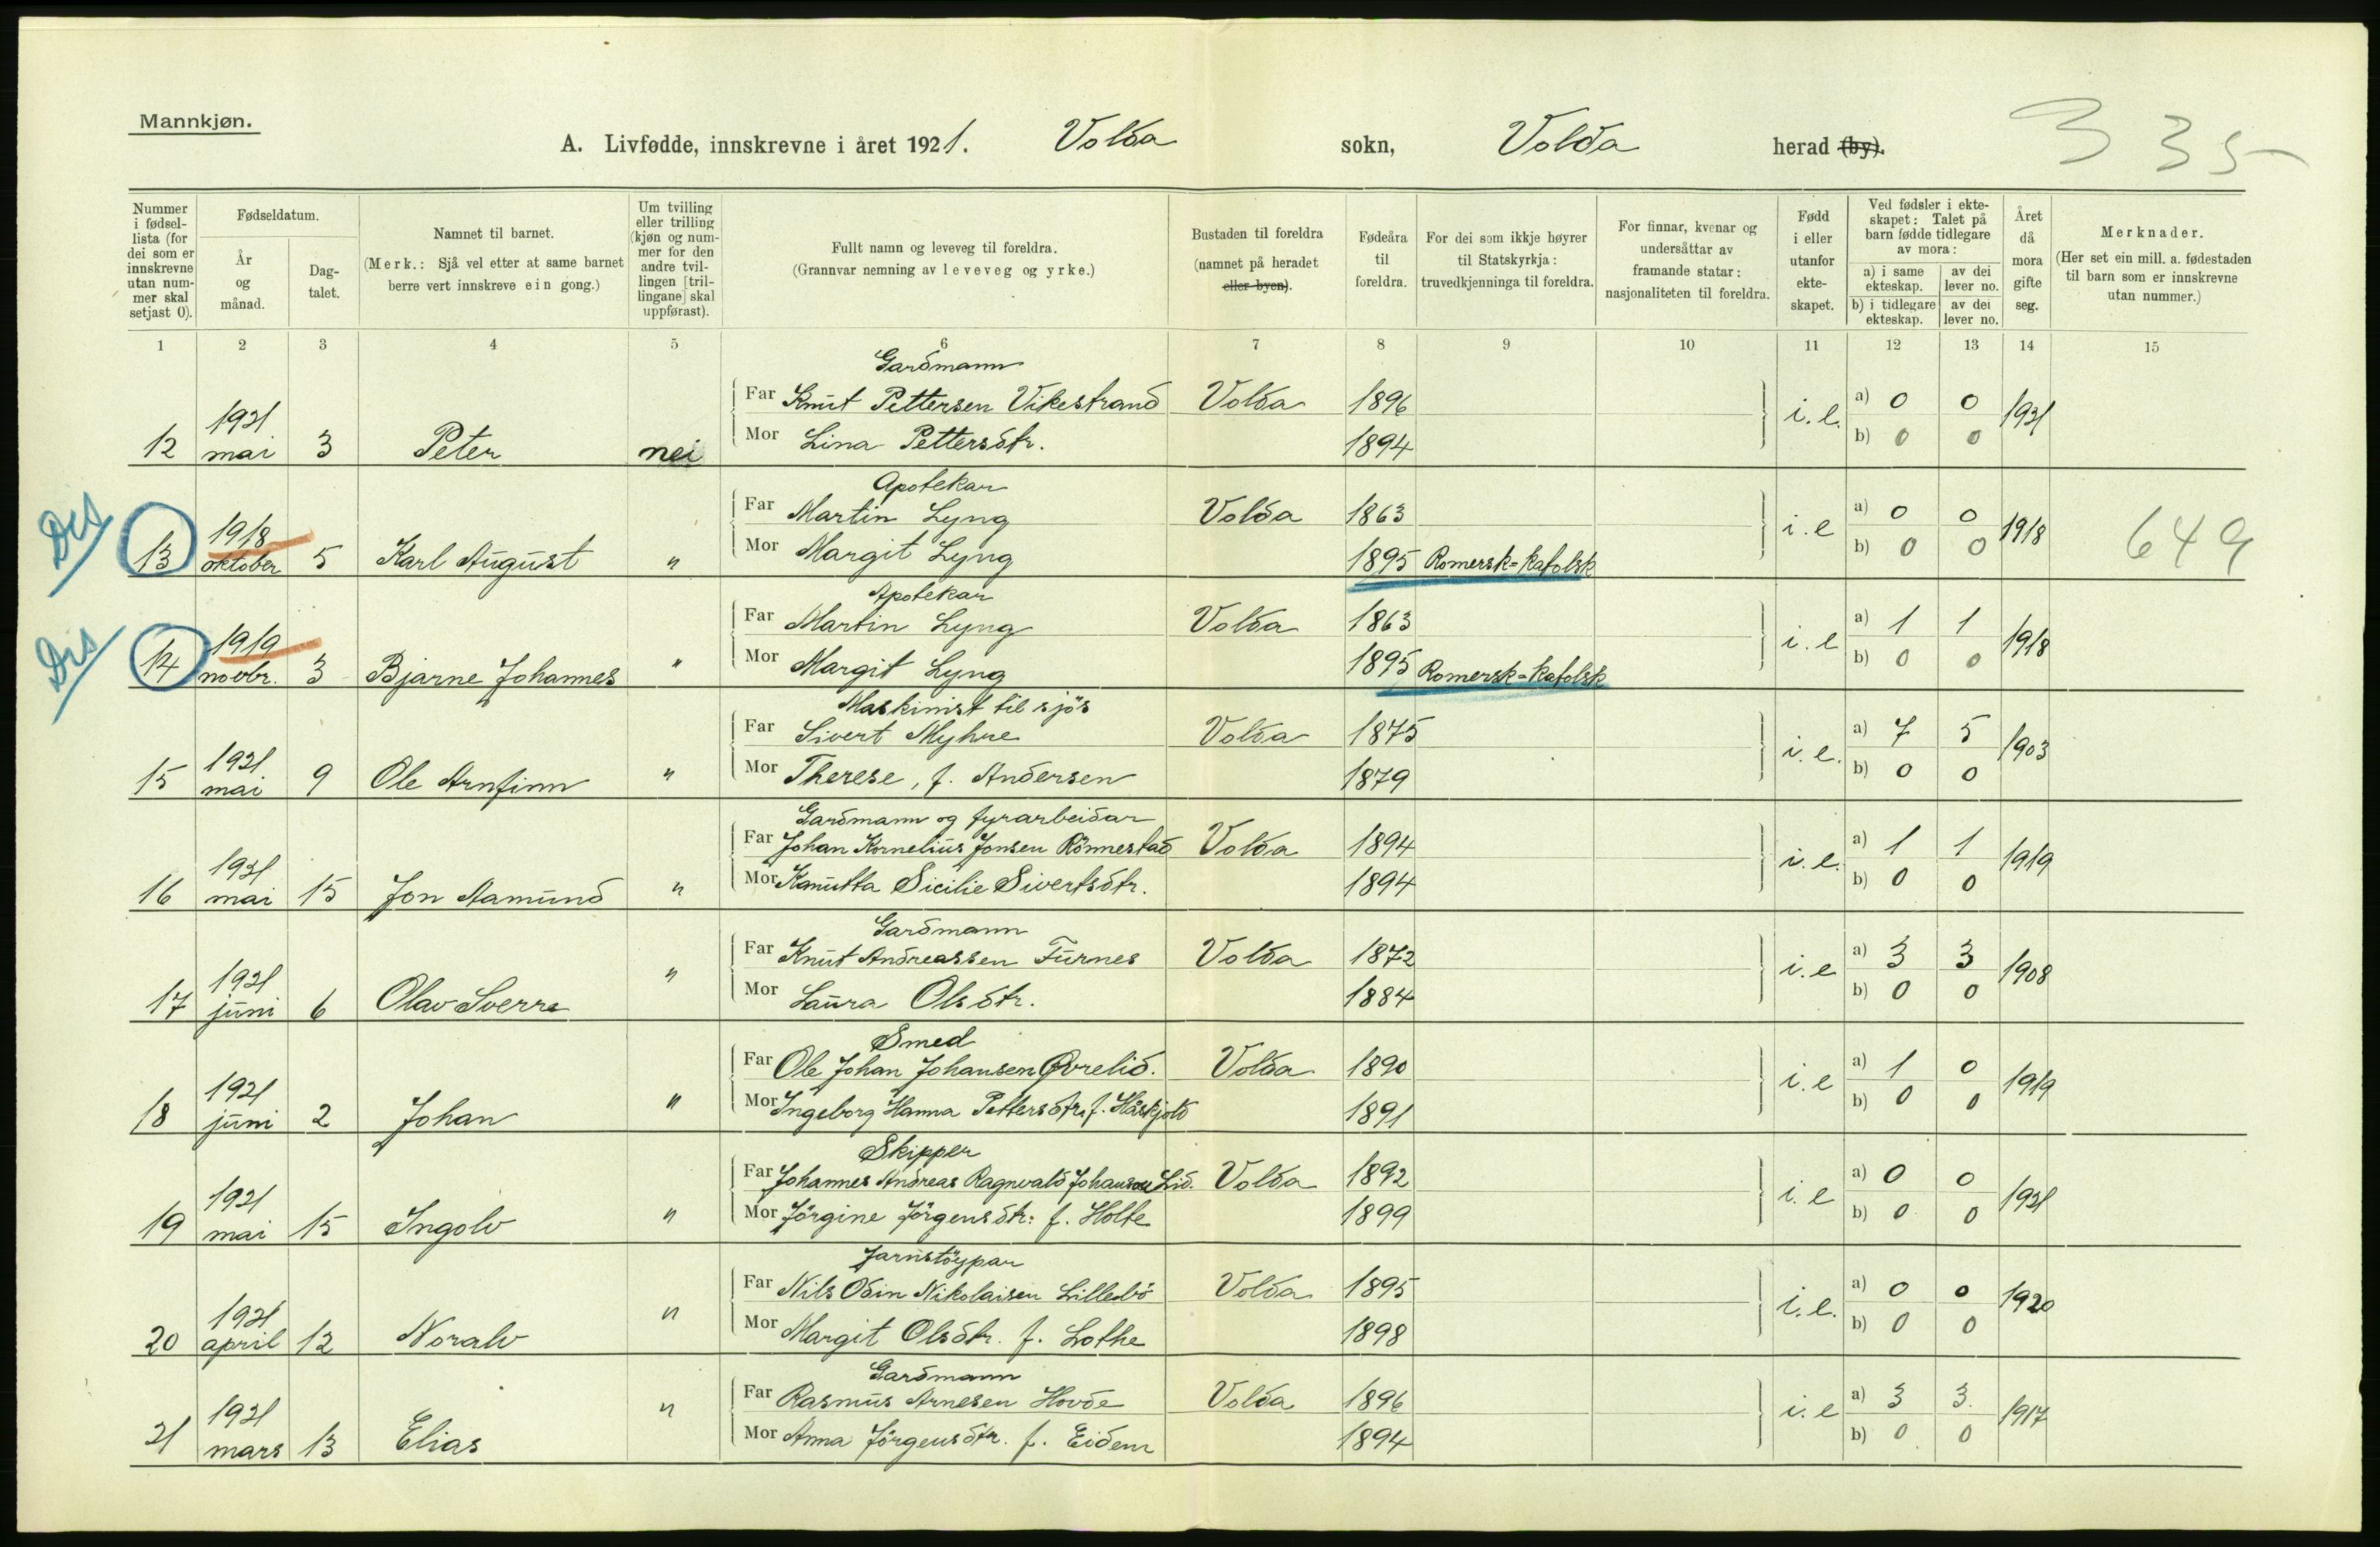 Mannkjøn.
A. Livfødde, innskrevne i året 1921. Volda sokn, Volda herad (by).
335
Nummer i fødsel-lista (for dei som er innskrevne utan num-mer skal setjast 0).
Fødseldatum.
År og månad.
Dag-talet.
Namnet til barnet.
(Merk.: Sjå vel etter at same barnet berre vert innskreve ein gong.)
Um tvilling eller trilling (kjøn og num-mer for den andre tvil-lingen [tril-lingane] skal uppførast).
Fullt namn og leveveg til foreldra.
(Grannvar nemning av leveveg og yrke.)
Bustaden til foreldra (namnet på heradet eller byen).
Fødeåra til foreldra.
For dei som ikkje høyrer til Statskyrkja: truvedkjenninga til foreldra.
For finnar, kvenar og undersåttar av framande statar: nasjonaliteten til foreldra.
Fødd i eller utanfor ekte-skapet.
Ved fødsler i ekte-skapet: Talet på barn fødde tidlegare av mora:
a) i same ekteskap. av dei lever no.
b) i tidlegare ekteskap. av dei lever no.
Året då mora gifte seg.
Merknader.
(Her set ein mill. a. fødestaden til barn som er innskrevne utan nummer.)
1 2 3 4 5 6 7 8 9 10 11 12 13 14 15
Gardmann
Far Knut Pettersen Vikestrand Volda 1896 a) 0 0
12 1921 mai 3 Peter nei Mor Lina Pettersdtr. 1894 i.e. b) 0 0 1921
Apotekar
Far Martin Lyng Volda 1863 a) 0 0
13 1918 oktober 5 Karl August " Mor Margit Lyng 1895 Romersk-katolsk i.e b) 0 0 1918 649
Apotekar
Far Martin Lyng Volda 1863 a) 1 1
14 1919 novbr. 3 Bjarne Johannes " Mor Margit Lyng 1895 Romersk-katolsk i.e b) 0 0 1918
Maskinist til sjös
Far Sivert Myhre Volda 1875 a) 7 5
15 1921 mai 9 Ole Arnfinn " Mor Therese, f. Andersen 1879 i.e. b) 0 0 1903
Gardmann og fyrarbeidar
Far Johan Kornelius Jonsen Rönnestad Volda 1894 a) 1 1
16 1921 mai 15 Jon Aamund " Mor Knutta Sicilie Sivertsdtr. 1894 i.e. b) 0 0 1919
Gardmann
Far Knut Andreassen Furnes Volda 1872 a) 3 3
17 1921 juni 6 Olav Sverre " Mor Laura Olsdtr. 1884 i.e b) 0 0 1908
Smed
Far Ole Johan Johansen Øvrelid. Volda 1890 a) 1 0
18 1921 juni 2 Johan " Mor Ingeborg Hanna Pettersdtr. f. Håskjold 1891 i.e b) 0 0 1919
Skipper
Far Johannes Andreas Ragnvald Johansen Lid. Volda 1892 a) 0 0
19 1921 mai 15 Ingolv " Mor Jörgine Jörgensdtr: f. Holte 1899 i.e b) 0 0 1921
Jarnstöypar
Far Nils Odin Nikolaisen Lillebö Volda 1895 a) 0 0
20 1921 april 12 Noralv " Mor Margit Olsdtr. f. Lothe 1898 i.e. b) 0 0 1920
Gardmann
Far Rasmus Arnesen Hovde Volda 1896 a) 3 3.
21 1921 mars 13 Elias " Mor Anna Jörgensdtr. f. Eidem 1894 i.e b) 0 0 1917